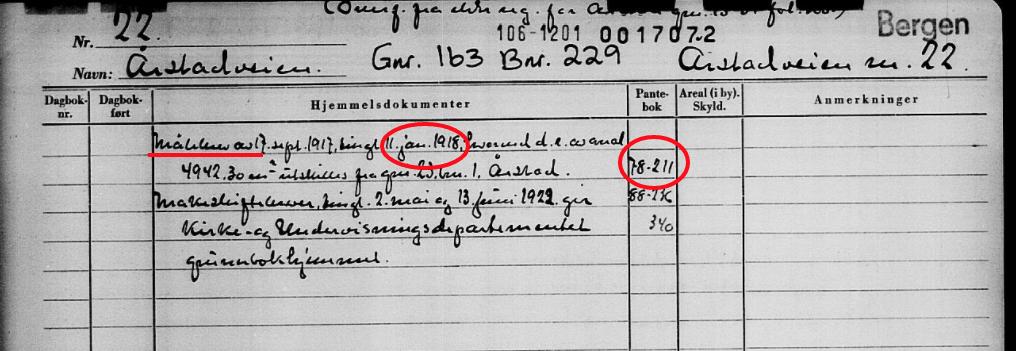 (Overf. fra
Bergen
Nr. 22.
106-1201 0017072
Navn: Årstadveien. Gnr. 163 Bnr. 229 Årstadveien nr. 22.
Dagbok- nr. Dagbok- ført Hjemmelsdokumenter Pante- bok Areal (i by). Skyld. Anmerkninger
Målebrev av 17. sept. 1917, tingl. 11. jan. 1918, hvorved d.e. av areal
4942.30 m² utskilles fra gnr. bnr. 1, Årstad. 78-211
Makeskifteskjøter, tingl. 2. mai og 13. juni 1922 gir 88-
Kirke- og Undervisningsdepartementet 340
grunnbokhjemmel.